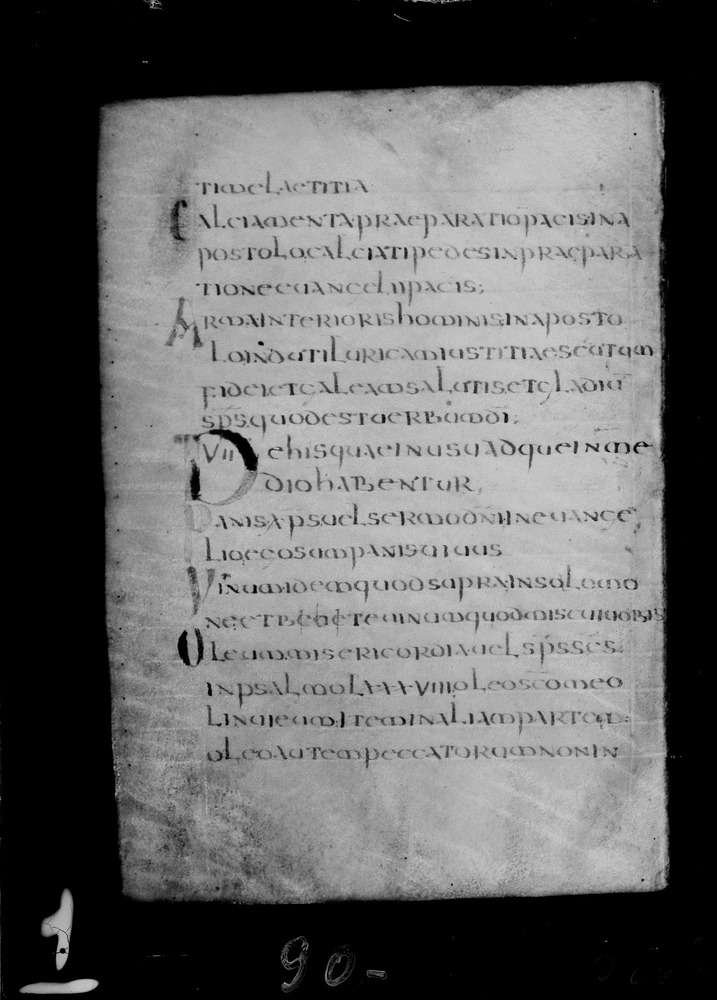 TIMELAETITIA
CALCIAMENTAPRAEPARATIOPACISINA
POSTOLOCALCIATIPEDESINPRAEPARA
TIONEEUANGELIIPACIS;
ARMAINTERIORISHOMINISINAPOSTO
LOINDUTILURICAMIUSTITIAESCUTUM
FIDEIETGALEAMSALUTISETGLADIU
SPSQUODESTUERBUMDI;
VII DEHISQUAEINUSUADQUEINME
DIOHABENTUR
PANISXPSUELSERMODNIINEUANGE
LIOEGOSUMPANISUIUUS
VINUMIDEMQUODSUPRAINSALOMO
NEETBEBETEUINUMQUODMISCUIUOBIS
OLEUMMISERICORDIAUELSPSSCS
INPSALMOLXXXVIIIOLEOSCOMEO
LINUIEUMITEMINALIAMPARTEM:
OLEOAUTEMPECCATORUMNONIN
1
90-